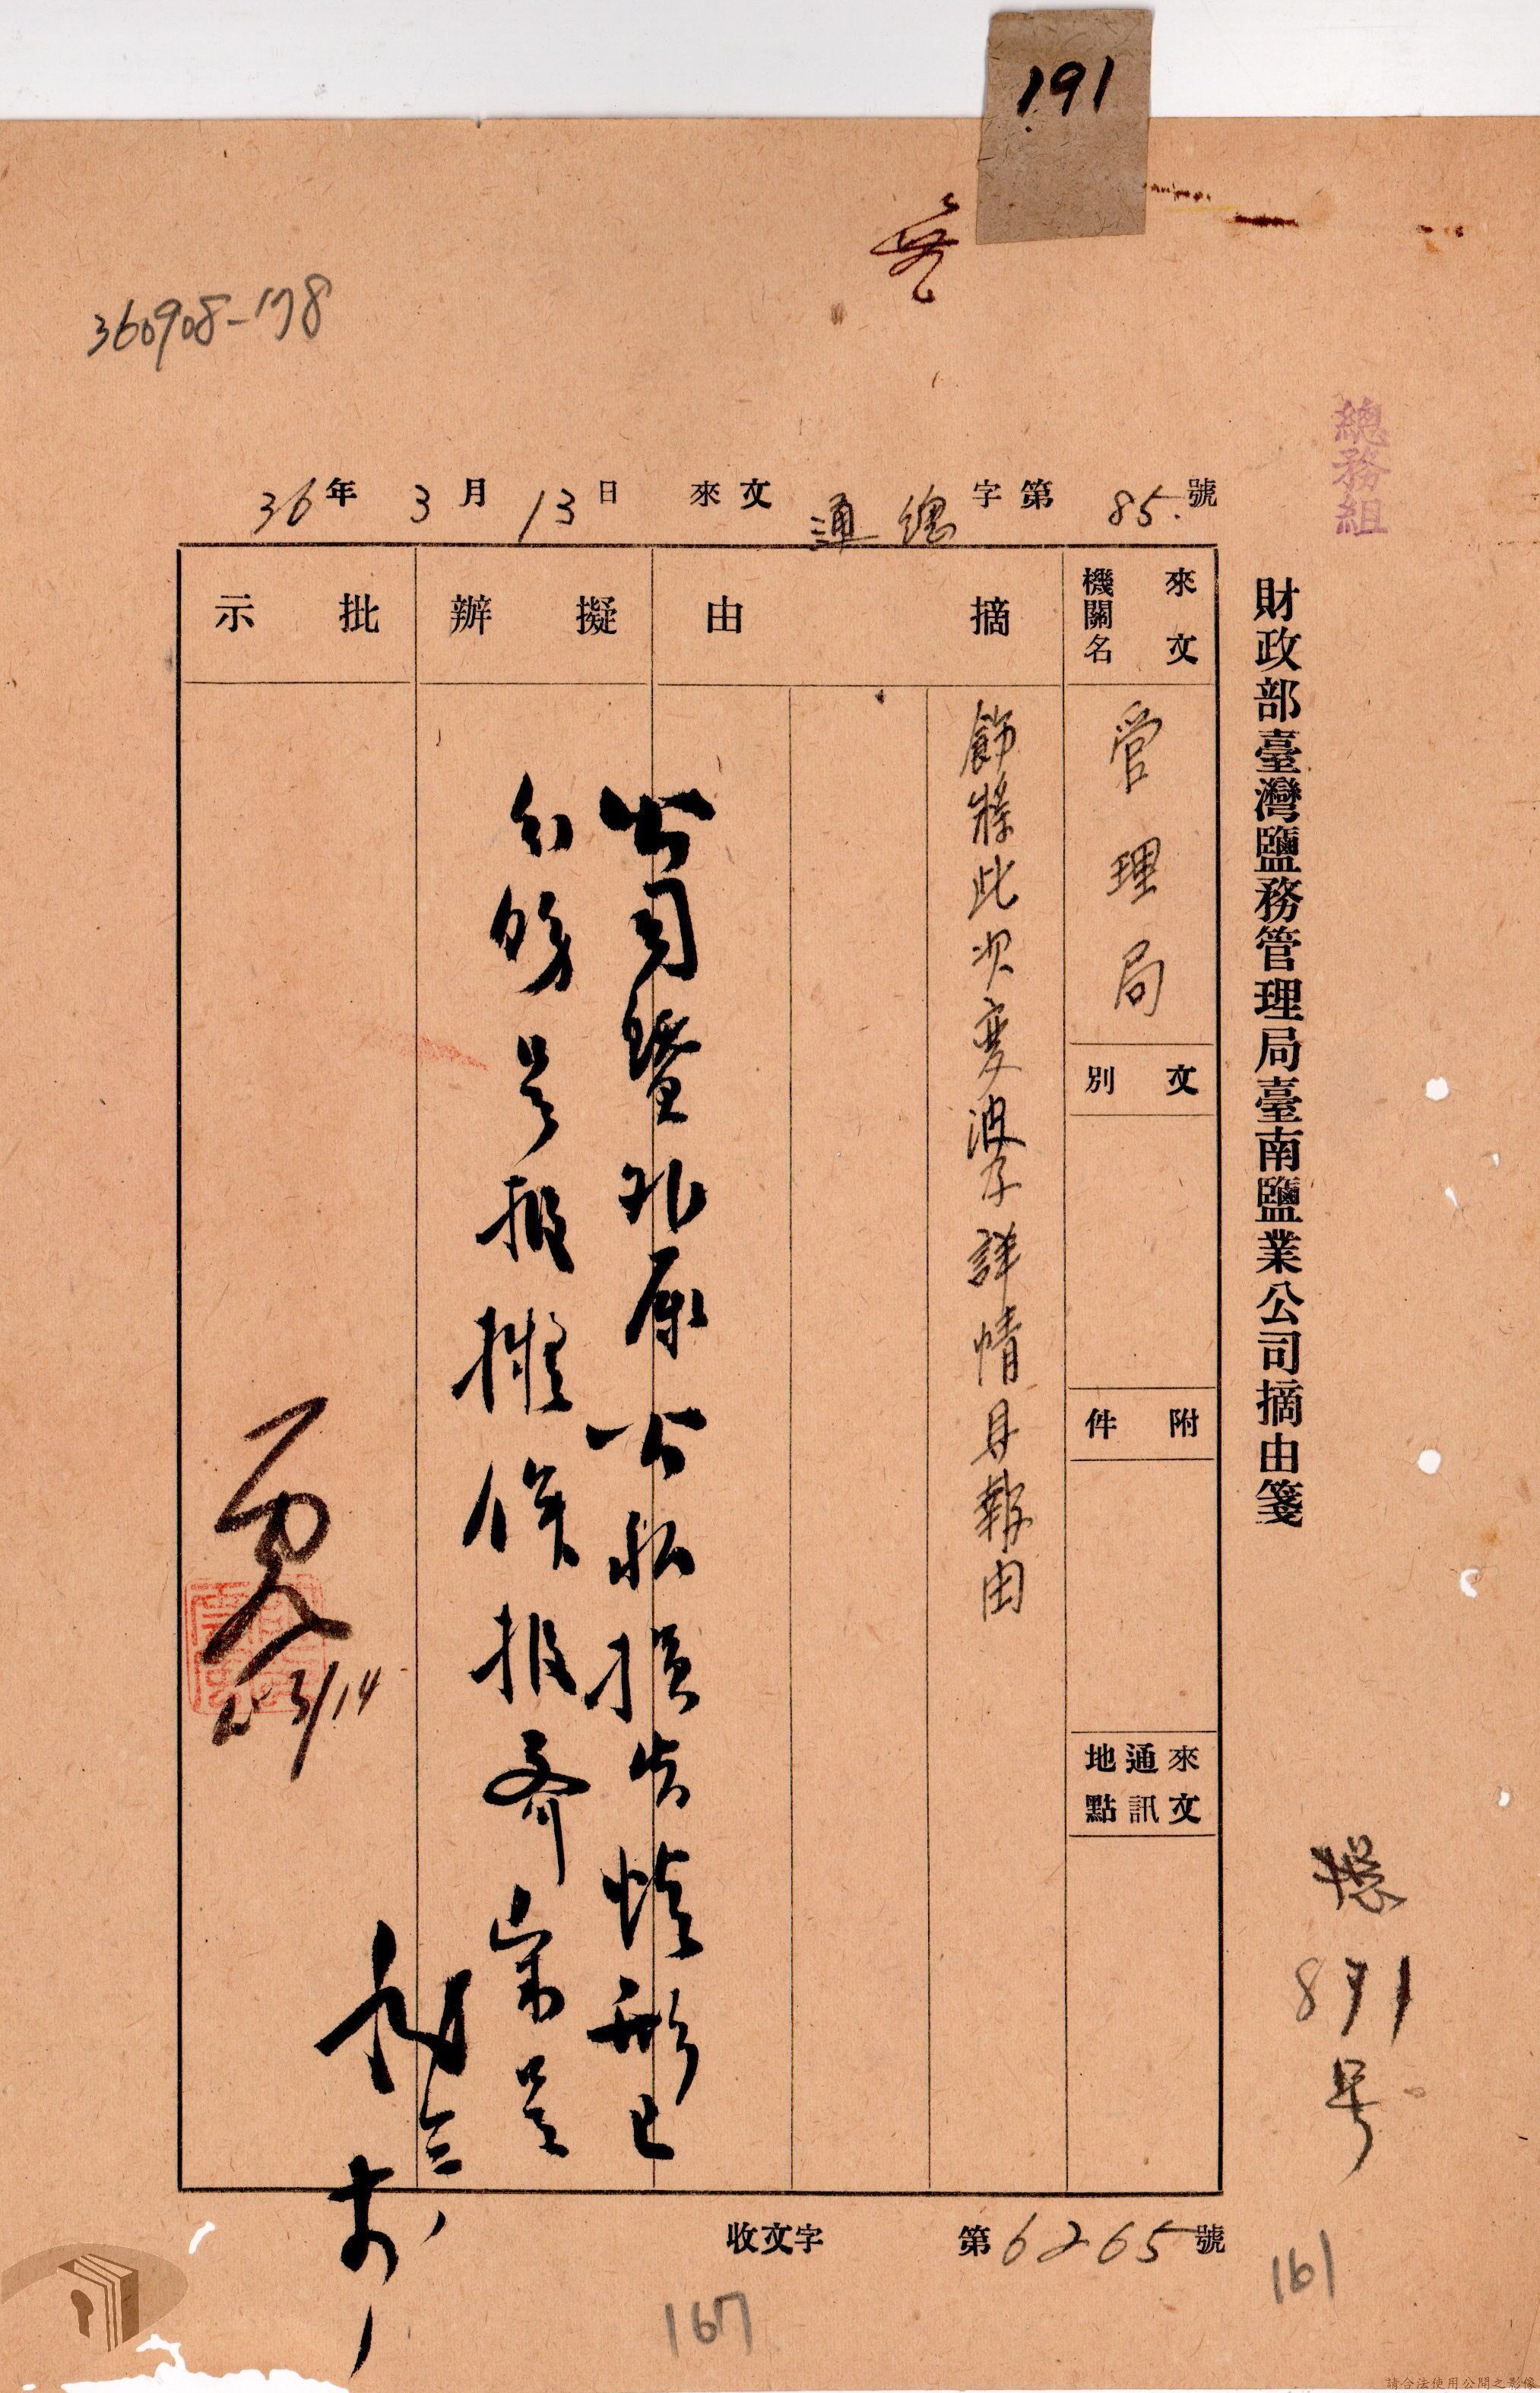 191
360908-178
總務組
財政部臺灣鹽務管理局臺南鹽業公司摘由箋
總
891
号
36年3月13日 來文 通總字第85號
來文機關名
管理局
文別
附件
來文通訊地點
摘由
飭將此次變波及詳情具報由
擬辦
公司暨 公私損失情形已
分飭呈報擬俟报齐彙呈
批示
3/14
收文字 第6265號
161
167
請合法使用公開之影像